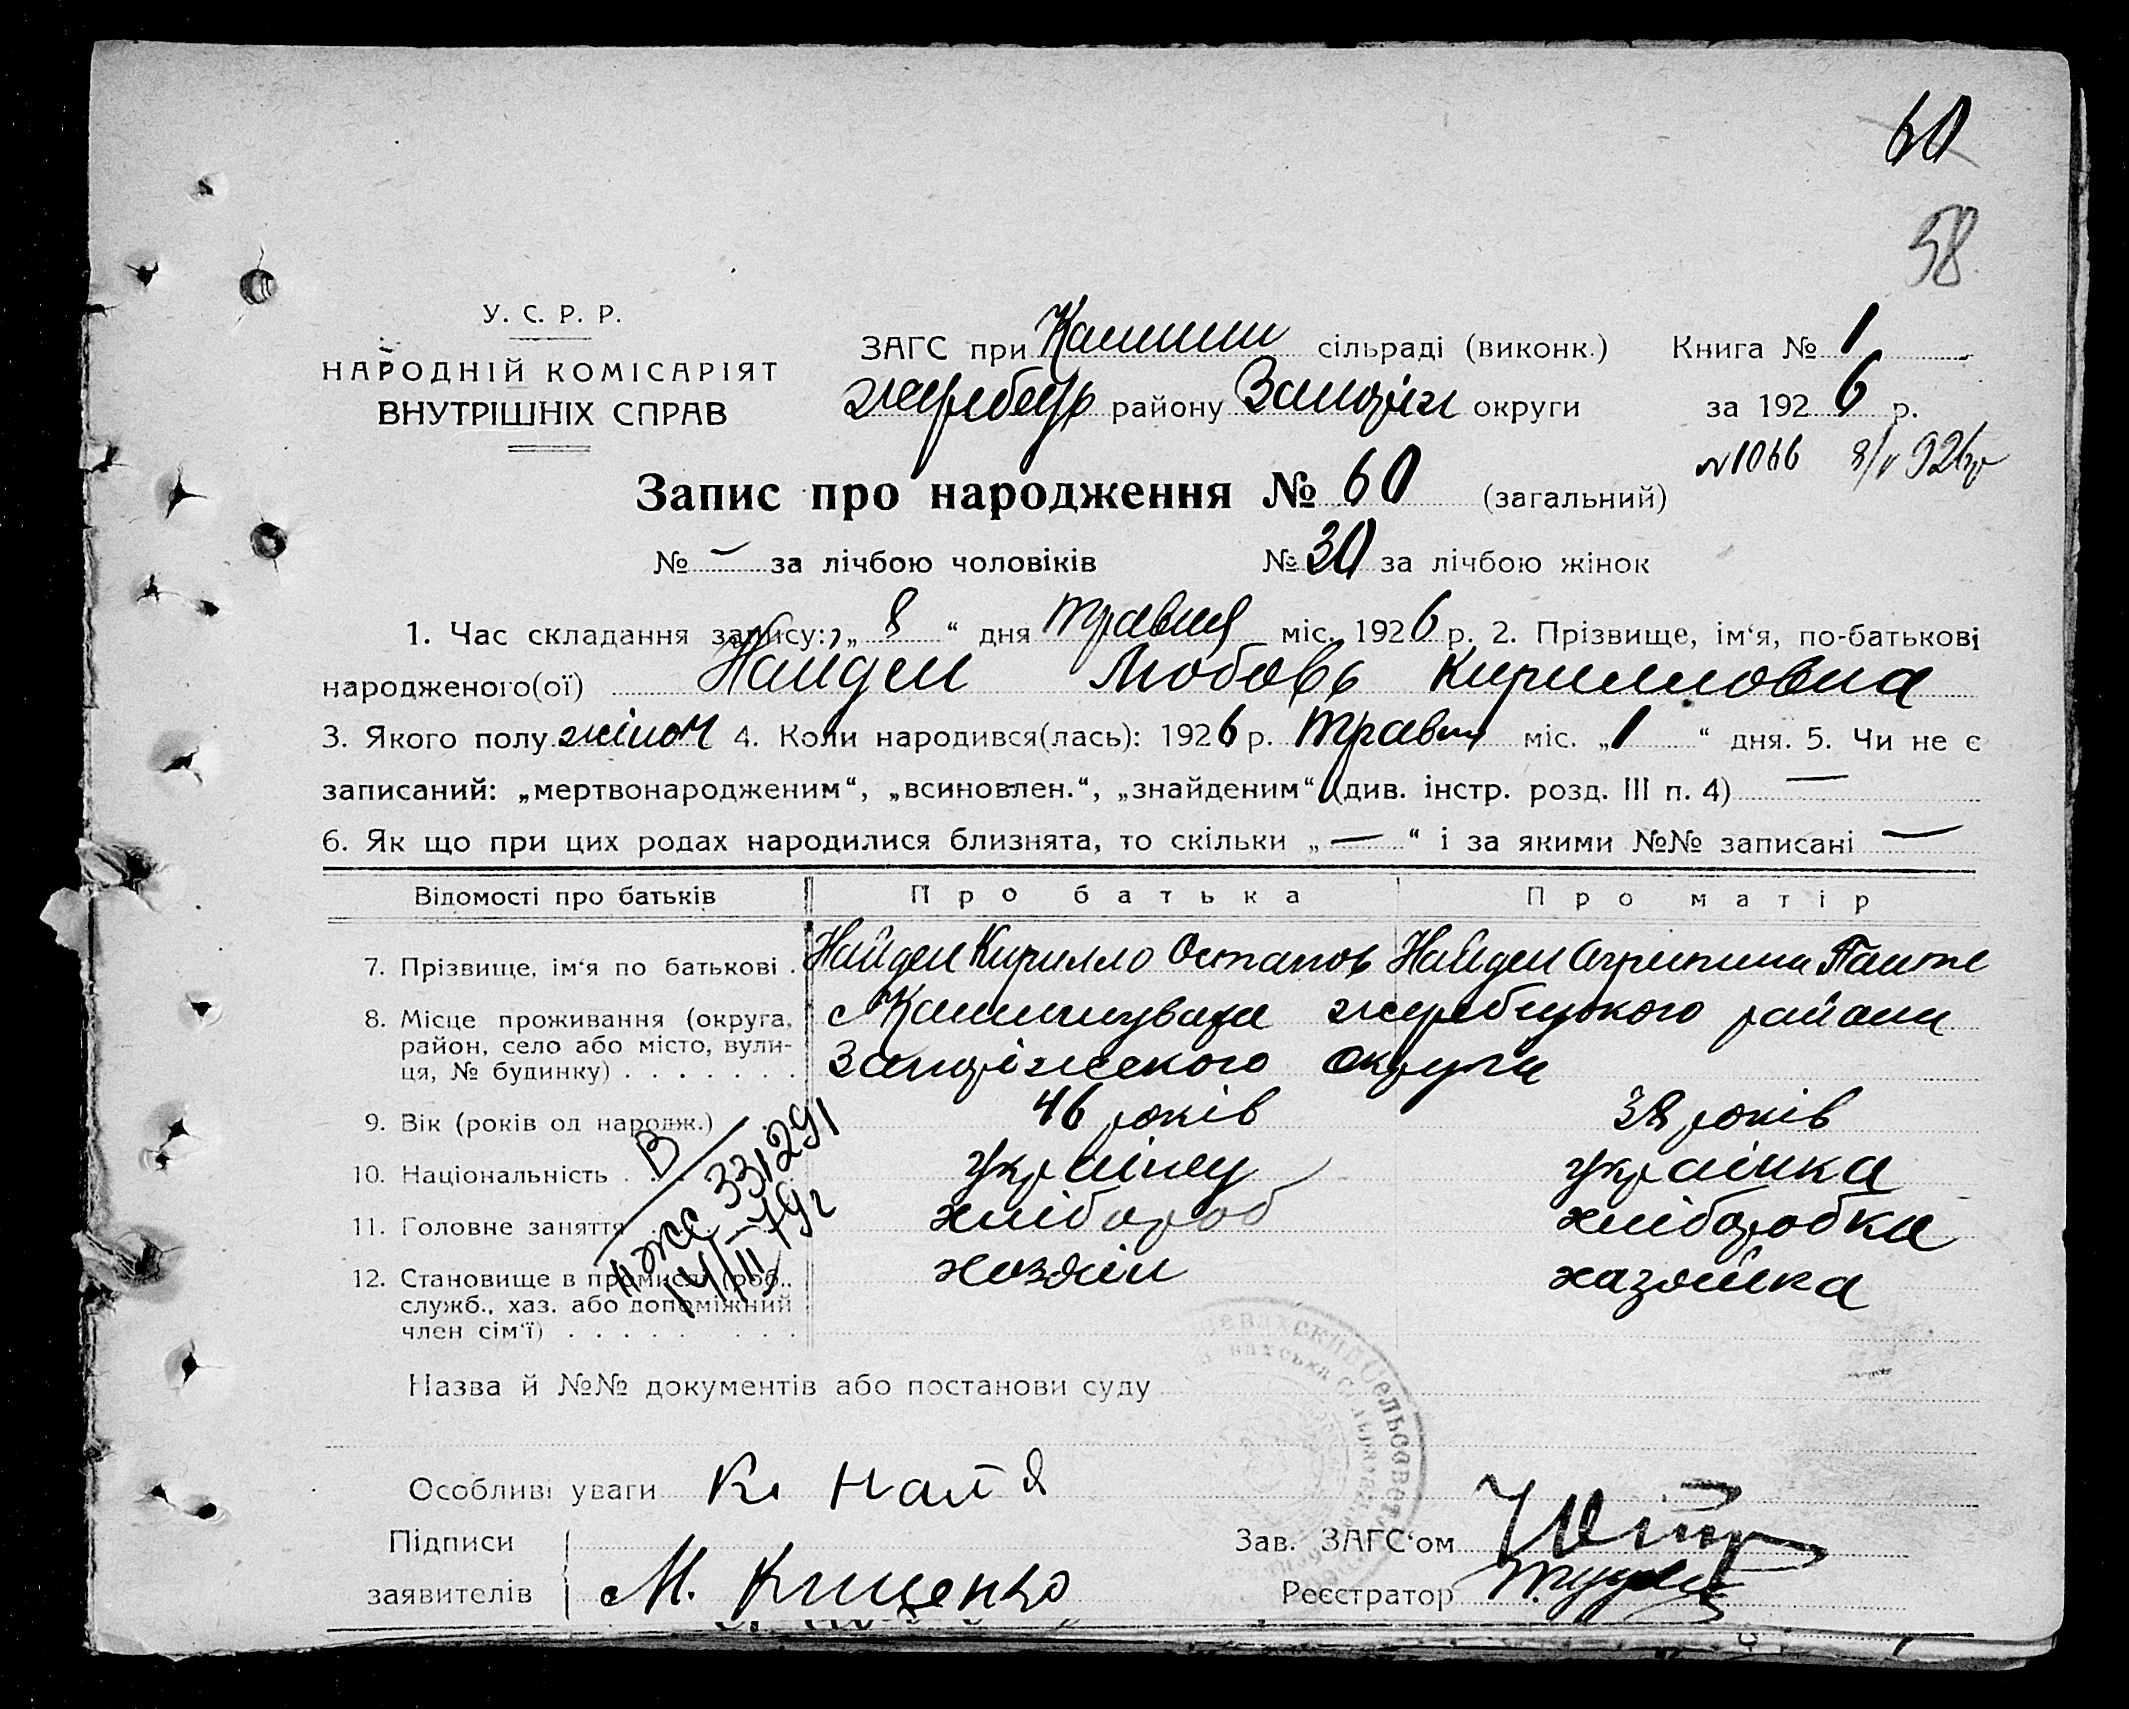 60
58
У. С. Р. Р.
НАРОДНІЙ КОМІСАРІЯТ
ВНУТРІШНІХ СПРАВ
ЗАГС при Камиши сільраді (виконк.) Книга № 1
жеребець району Запоріж округи за 1926 р.
№1066 8/V 926 р
Запис про народження № 60 (загальний)
№ — за лічбою чоловіків № 30 за лічбою жінок
1. Час складання запису: „ 8 “ дня травня міс. 1926 р. 2. Прізвище, ім‘я, по-батькові
народженого(ої) Найден Любовь Кирилловна
3. Якого полу жіноч 4. Коли народився(лась): 1926 р. травня міс. „1“ дня. 5. Чи не є
записаний: „мертвонародженим“, „всиновлен.“, „знайденим“ (див. інстр. розд. III п. 4) —
6. Як що при цих родах народилися близнята, то скільки „ — “ і за якими №№ записані —
Відомості про батьків Про батька Про матір
7. Прізвище, ім‘я по батькові . Найден Кирилло Остапов Найден Агрипина Панте
8. Місце проживання (округа, район, село або місто, вулиця, № будинку) . . . . . . . с Камишуваха жеребецького района
Запоріжского округи
9. Вік (років од народж.) 46 років 38 років
10. Національність . . . українец українка
11. Головне заняття хлібороб хліборобка
12. Становище в промислі (роб., служб., хаз. або допоміжний член сім‘ї) . . . . . . . . хозяін хазяйка
В
33291
79г
Назва й №№ документів або постанови суду
Особливі уваги
Підписи
заявителів М. Кищенко
Зав. ЗАГС‘ом
Реєстратор